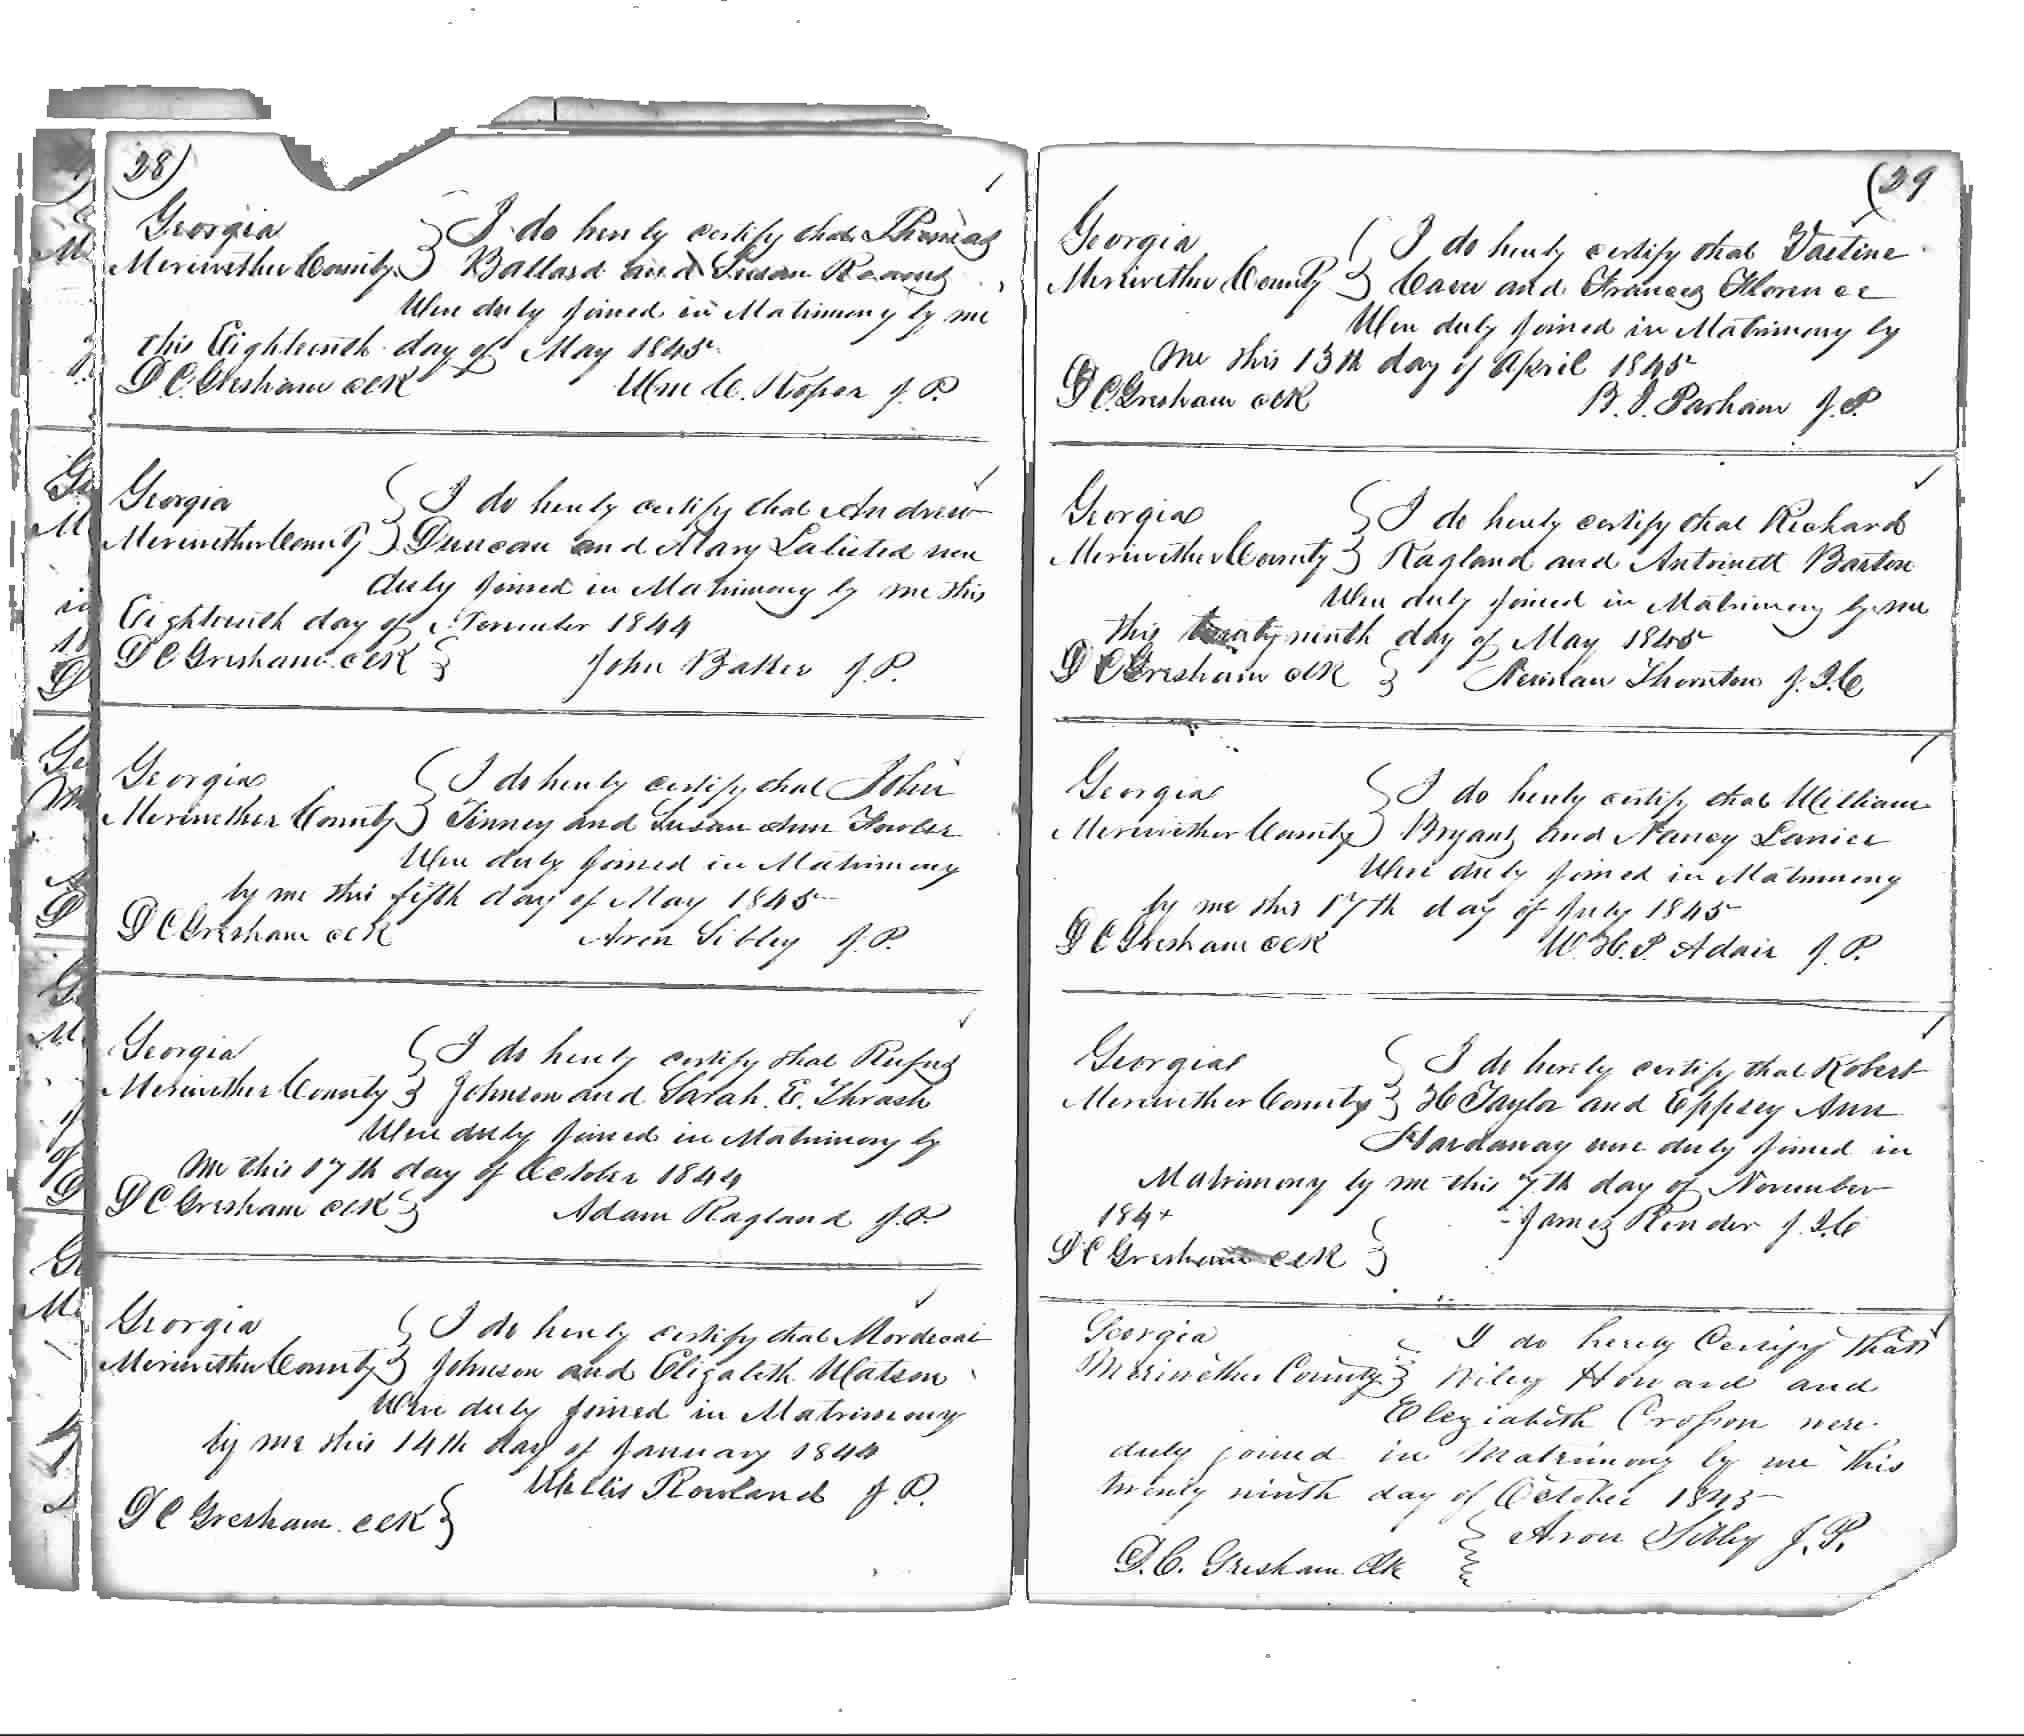 28)
Georgia
Meriwether County } I do hereby certify that Thomas
Ballard and Susan
Were duly joined in Matrimony by me
this Eighteenth day of May 1845
D C Gresham cck Wm C. Roper J. P.
Georgia
Meriwether County } I do hereby certify that Andrew
Duncan and Mary were
duly joined in Matrimony by me this
Eighteenth day of November 1844
D C Gresham cck } John Baker J. P.
Georgia
Meriwether County } I do hereby certify that John
Tinney and Susan Ann Fowler
Were duly joined in Matrimony
by me this fifth day of May 1845
D C Gresham cck Aron Sibley J. P.
Georgia
Meriwether County } I do hereby certify that Rufus
Johnson and Sarah. E. Thrash
Were duly joined in Matrimony by
me this 17th day of October 1844
D C Gresham cck } Adam Ragland J. P.
Georgia
Meriwether County } I do hereby certify that Mordecai
Johnson and Elizabeth Watson
Were duly joined in Matrimony
by me this 14th day of January 1844
Willis Rowland J. P.
D C Gresham. cck }
(29
Georgia
Meriwether County } I do hereby certify that
and Frances Florence
Were duly joined in Matrimony by
me this 13th day of April 1845
D C Gresham cck B. J. Parham J. P.
Georgia
Meriwether County } I do hereby certify that Richard
Ragland and Antoinett Barton
Were duly joined in Matrimony by me
this twenty ninth day of May 1845
D C Gresham cck } Newman Thornton J. I. C
Georgia
Meriwether County } I do hereby certify that William
Bryant and Nancy Lanier
Were duly joined in Matrimony
by me this 17th day of July 1845
D C Gresham cck W. H. P. Adair J. P.
Georgia
Meriwether County } I do hereby certify that Robert
H Taylor and Eppsey Ann
Hardaway were duly joined in
Matrimony by me this 7th day of November
184+ James Render J. I. C
D C Gresham cck }
Georgia
Meriwether County } I do hereby Certify that
Riley Howard and
Eleziabeth Crosson were
duly joined in Matrimony by me this
twenty ninth day of October 1845
Aron Sibley J. P.
D. C. Gresham Clk